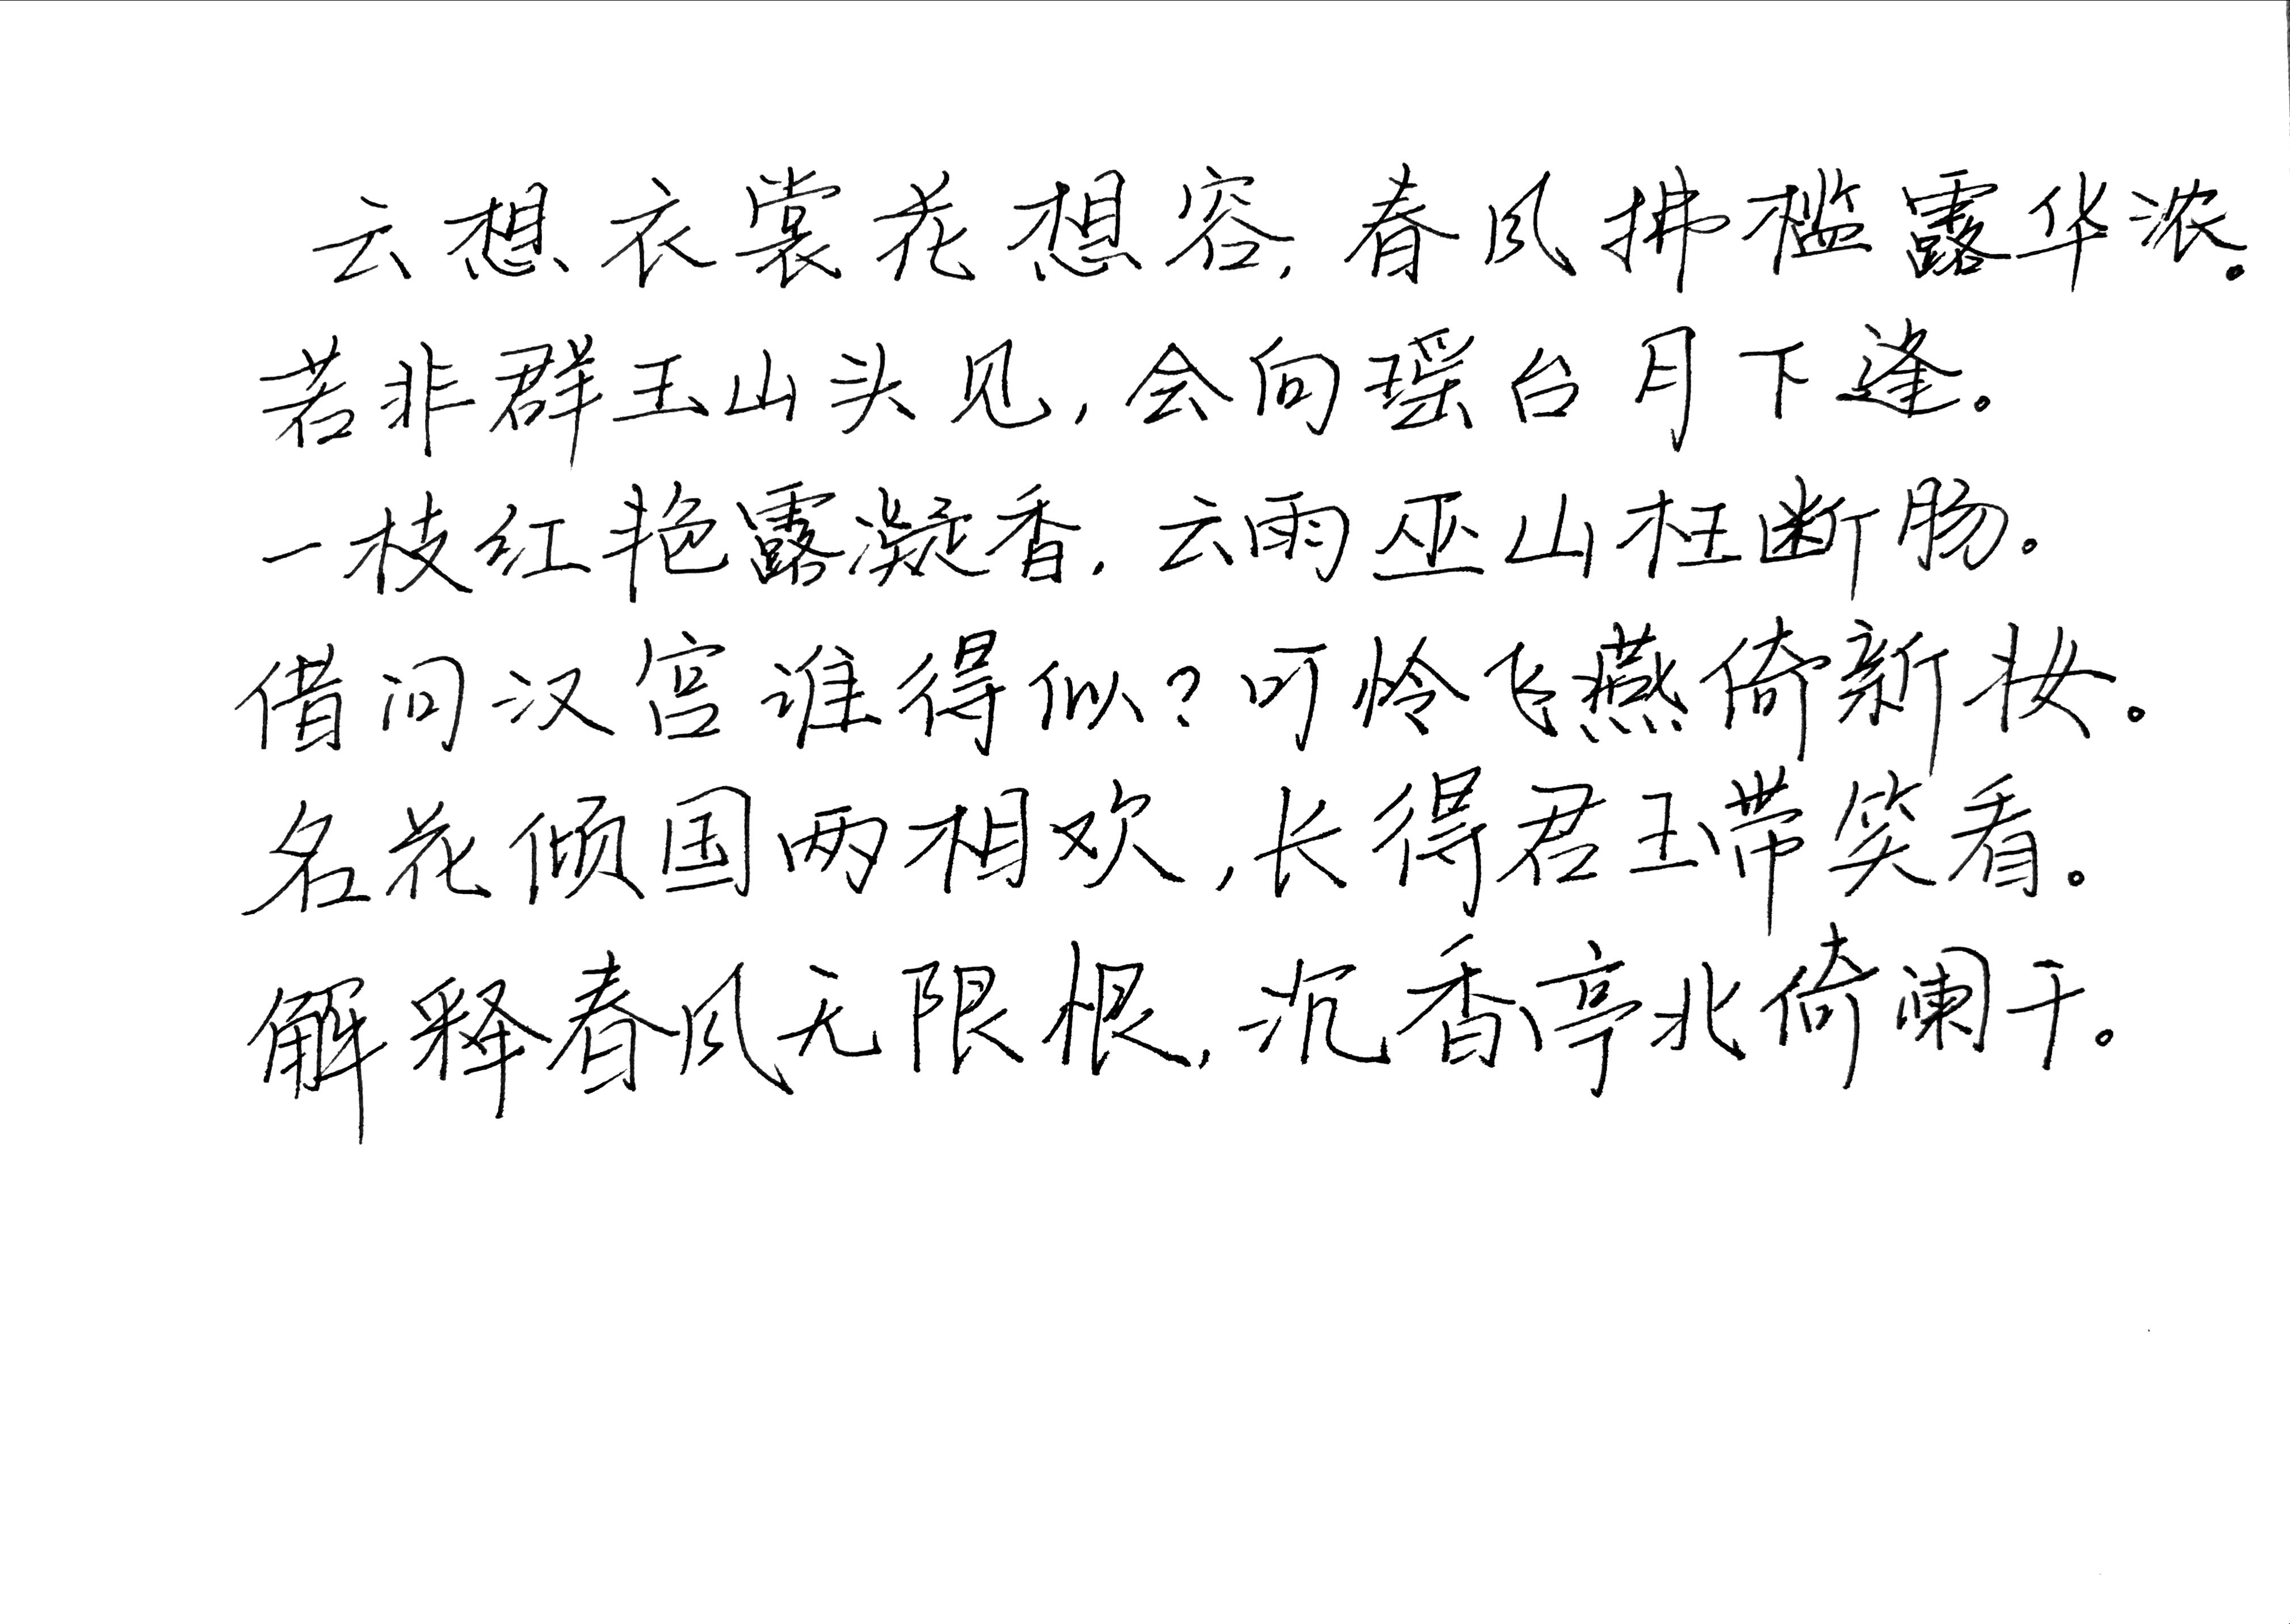 云想衣裳花想容,春风拂槛露华浓。
若非群玉山头见,会向瑶台月下逢。
一枝红艳露凝香,云雨巫山枉断肠。
借问汉宫谁得似?可怜飞燕倚新妆。
名花倾国两相欢,长得君王带笑看。
解释春风无限恨,沉香亭北倚阑干。